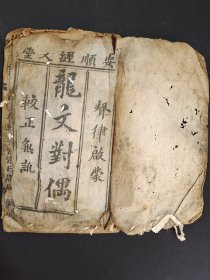 安順經文堂
聲律啟蒙
龍文對偶
較正無訛